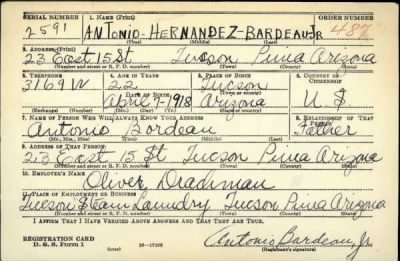 SERIAL NUMBER 1. NAME (Print) ORDER NUMBER
2591 ANTONIO-HERNANDEZ-BARDEAU JR 487
(First) (Middle) (Last)
2. ADDRESS (Print)
23 East 15 St Tucson Pima Arizona
(Number and street or R. F. D. number) (Town) (County) (State)
3. TELEPHONE 4. AGE IN YEARS 5. PLACE OF BIRTH 6. COUNTRY OF CITIZENSHIP
3169 W 22 Tucson
DATE OF BIRTH (Town or county)
April-7-1918 Arizona U.S
(Exchange) (Number) (Mo.) (Day) (Yr.) (State or country)
7. NAME OF PERSON WHO WILL ALWAYS KNOW YOUR ADDRESS 8. RELATIONSHIP OF THAT PERSON
Antonio Bardeau Father
(Mr., Mrs., Miss) (First) (Middle) (Last)
9. ADDRESS OF THAT PERSON
23 East 15 St Tucson Pima Arizona
(Number and street or R. F. D. number) (Town) (County) (State)
10. EMPLOYER'S NAME
Oliver Drachman
11. PLACE OF EMPLOYMENT OR BUSINESS
Tucson Steam Laundry Tucson Pima Arizona
(Number and street or R. F. D. number) (Town) (County) (State)
I AFFIRM THAT I HAVE VERIFIED ABOVE ANSWERS AND THAT THEY ARE TRUE.
REGISTRATION CARD
D. S. S. Form 1 (over) 16-17105 Antonio Bardeau Jr
(Registrant's signature)